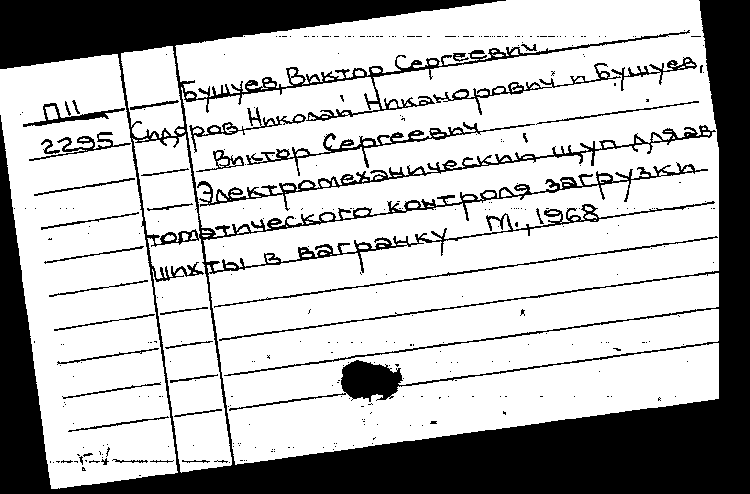 Бушуев, Виктор Сергеевич
П11
2295 Сидоров, Николай Никанорович и Бушуев,
Виктор Сергеевич
Электромеханический щуп для ав
томатического контроля загрузки
шихты в вагранку. М., 1968